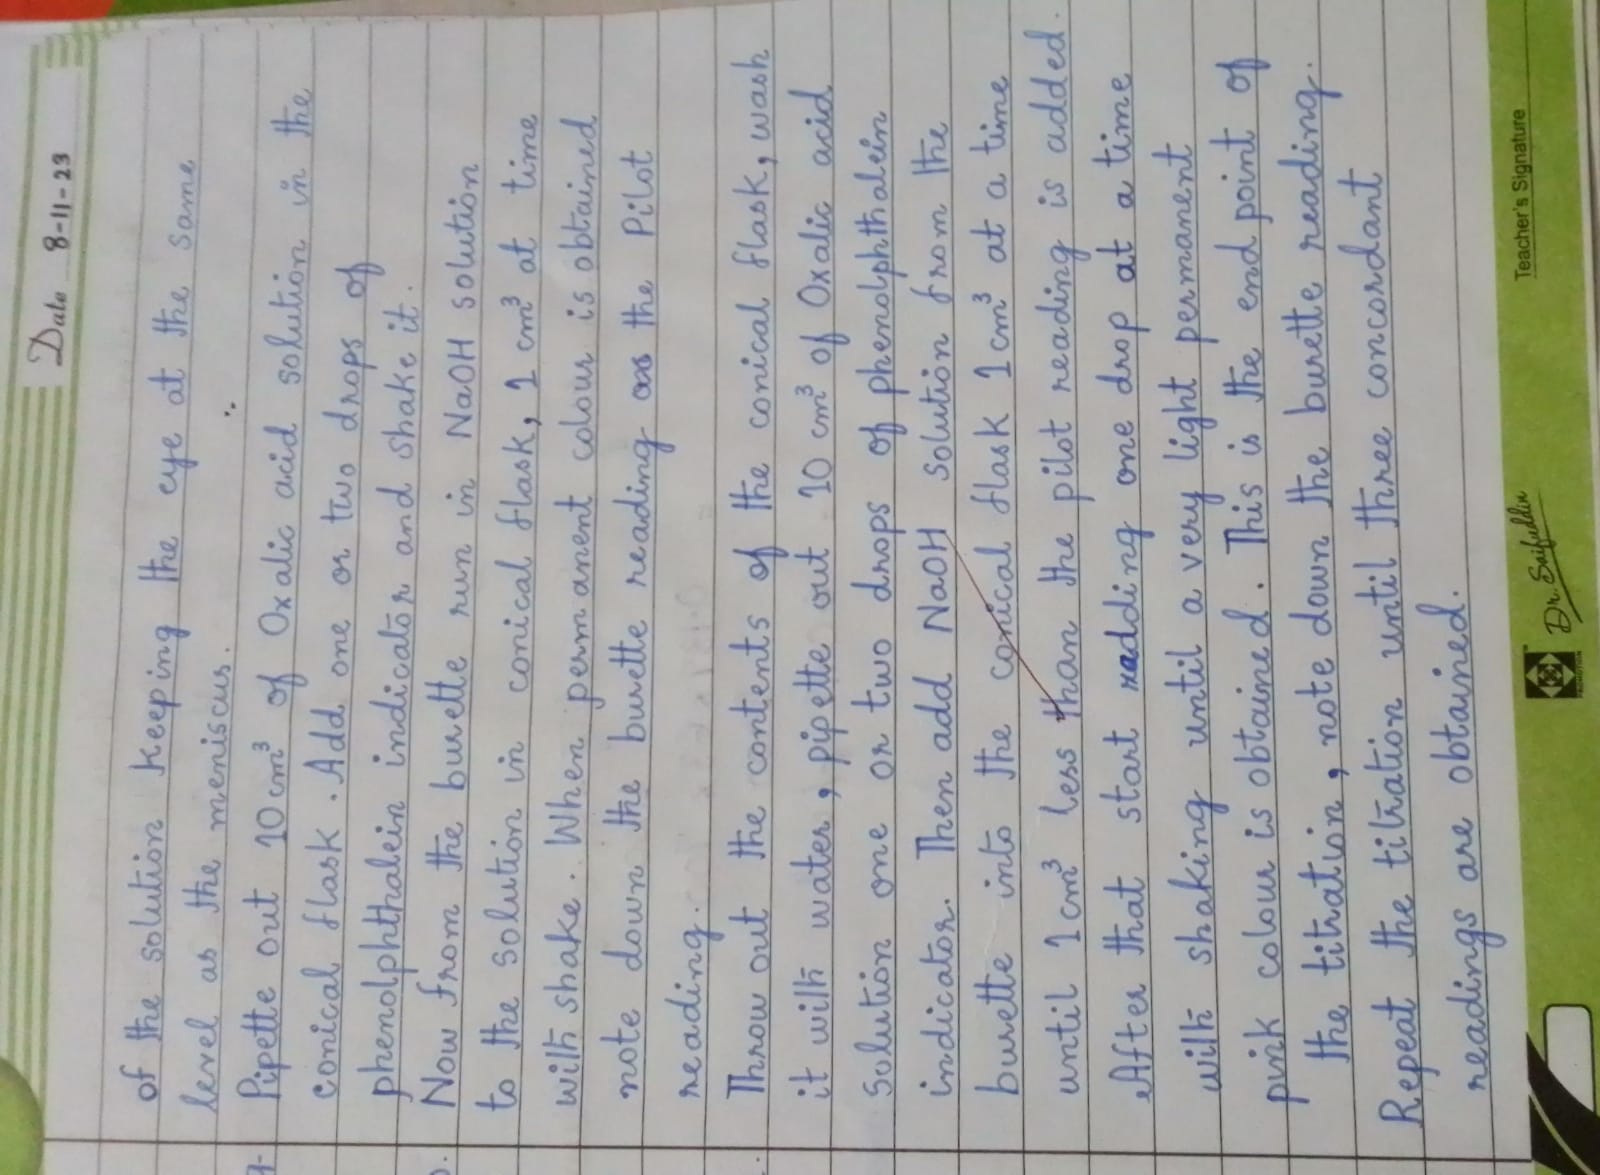 Date 8-11-23
of the solution keeping the eye at the same
level as the meniscus.
9- Pipette out 10 cm³ of Oxalic acid solution in the
conical flask. Add one or two drops of
phenolphthalein indicator and shake it.
Now from the burette run in NaOH solution
to the solution in conical flask, 1 cm³ at time
with shake. When permanent colour is obtained
note down the burette reading as the Pilot
reading.
Throw out the contents of the conical flask, wash
it with water, pipette out 10 cm³ of Oxalic acid
solution one or two drops of phenolphthalein
indicator. Then add NaOH solution from the
burette into the conical flask 1 cm³ at a time
until 1 cm³ less than the pilot reading is added.
After that start adding one drop at a time
with shaking until a very light permanent
pink colour is obtained. This is the end point of
the titration, note down the burette reading.
Repeat the titration until three concordant
readings are obtained.
PROMOTION
Dr. Saifuddin
Teacher's Signature